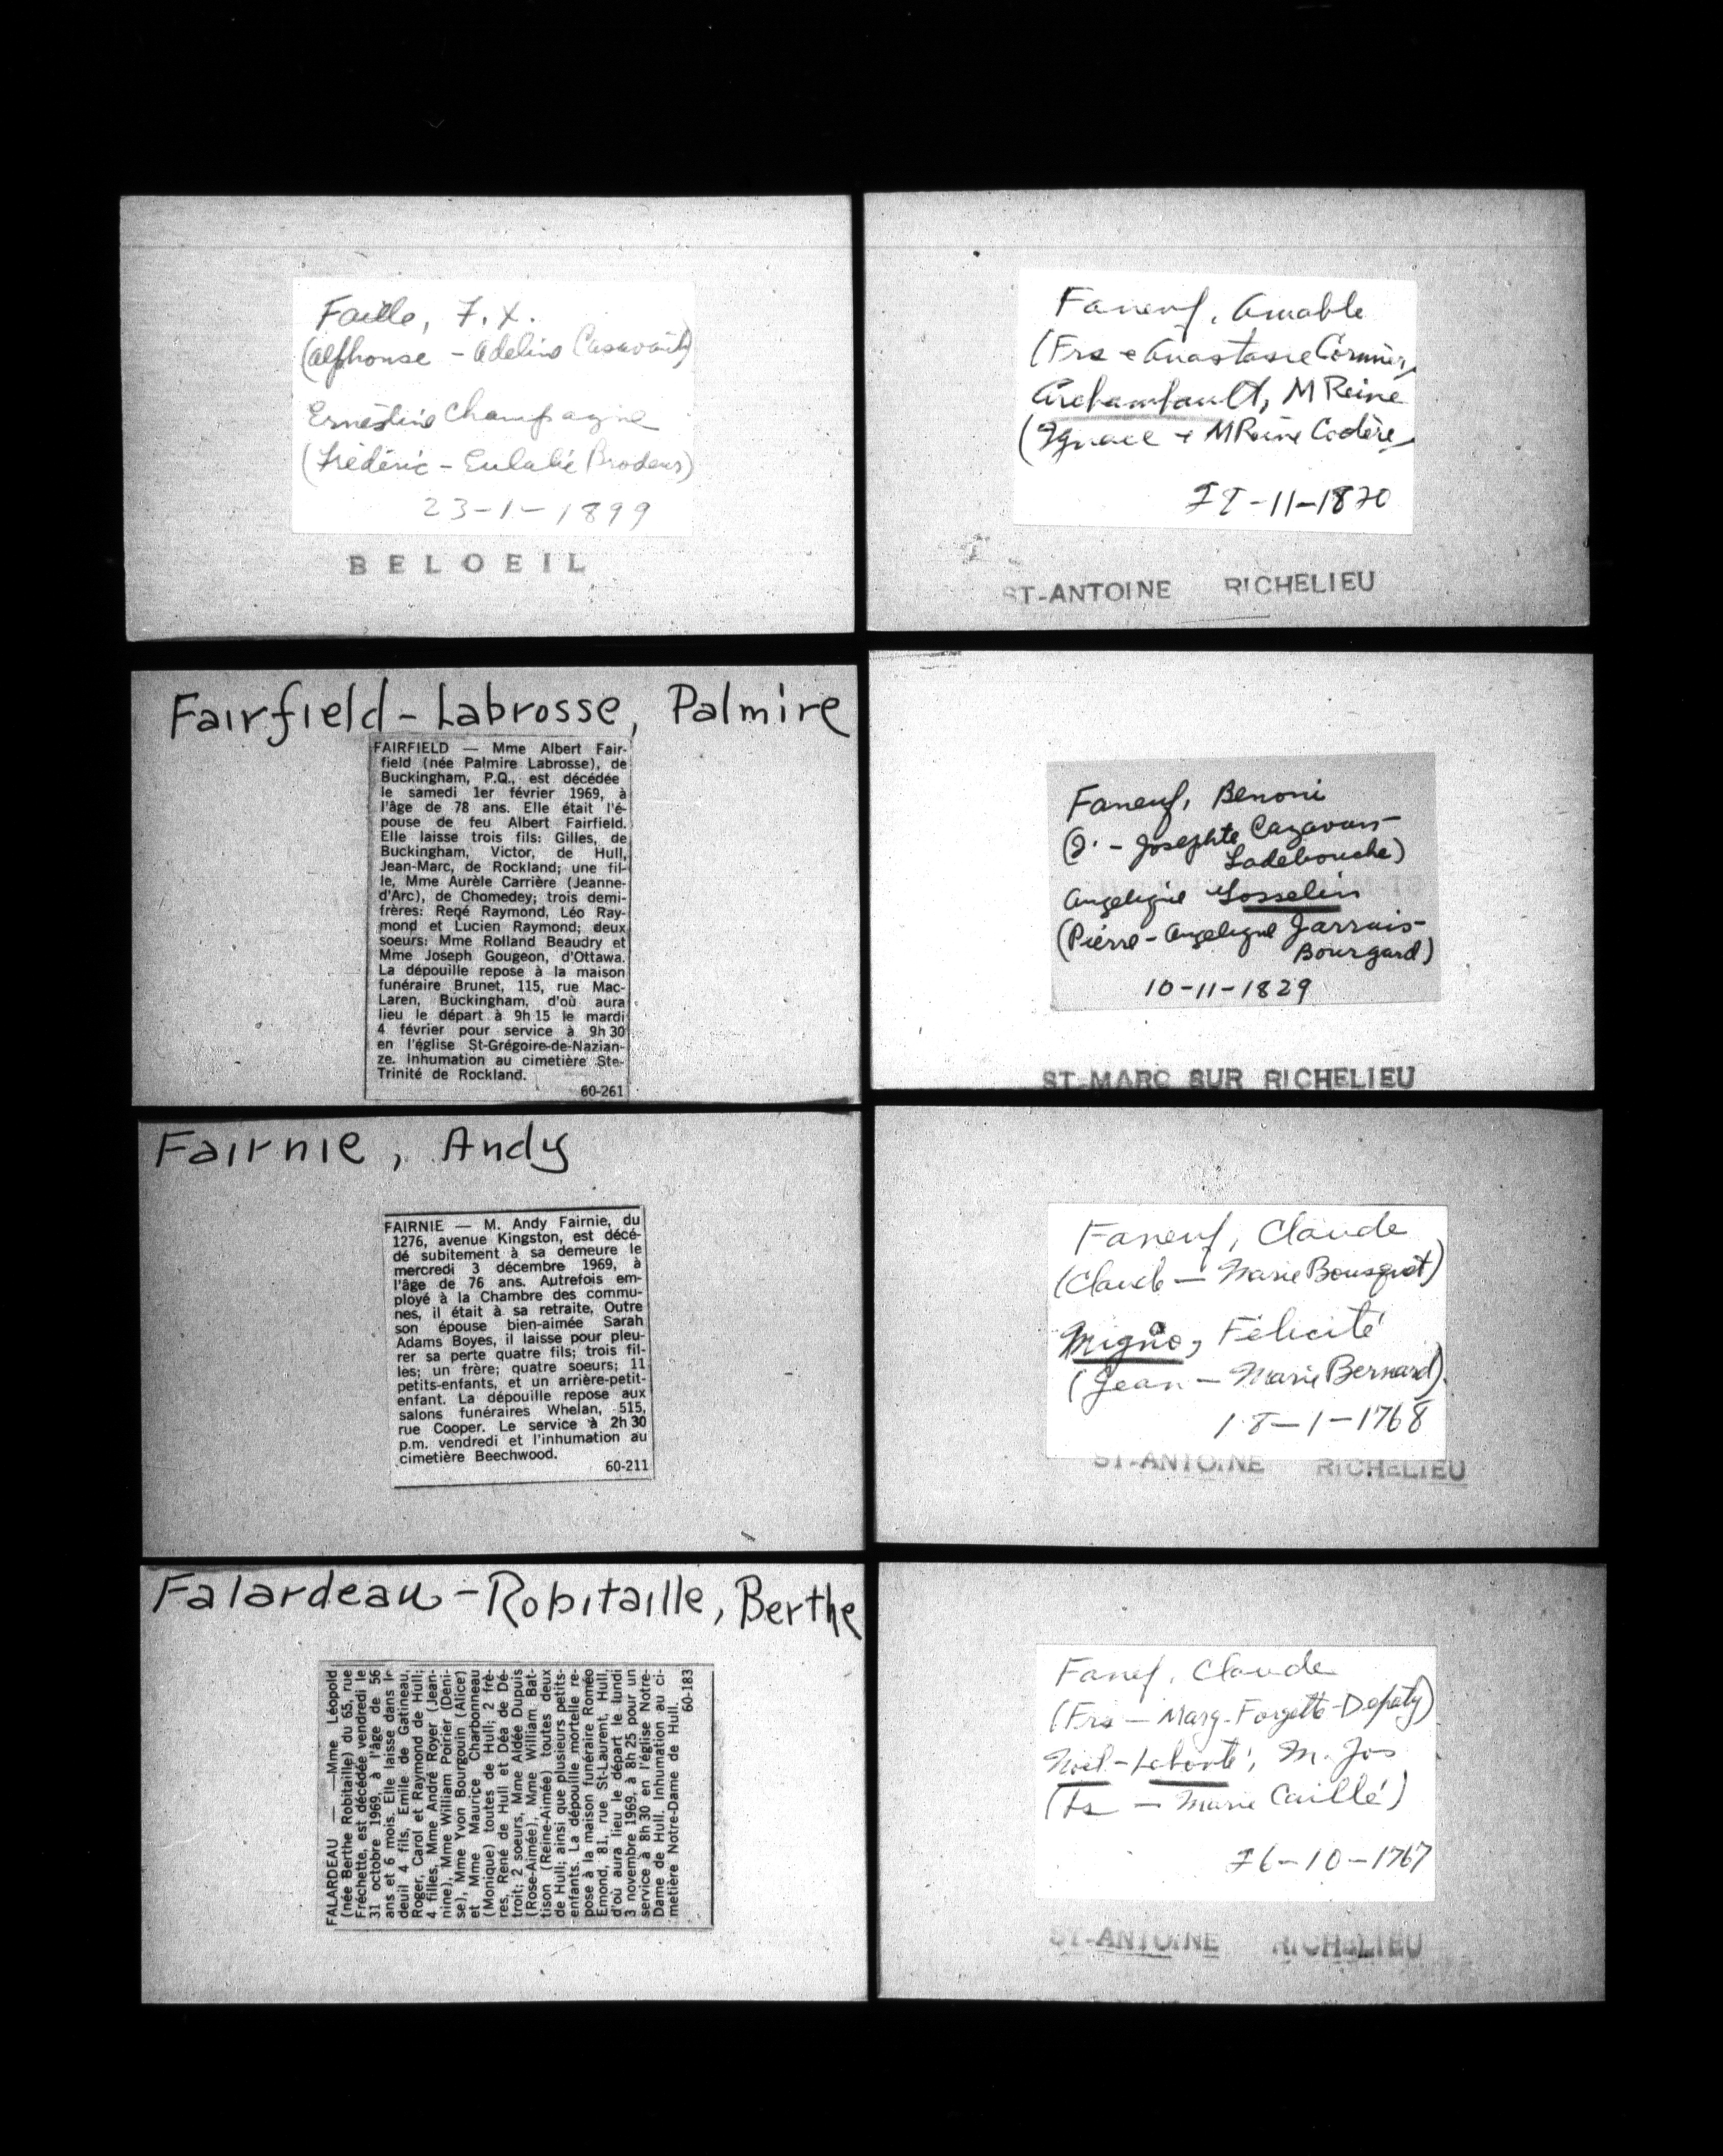 Faille, F. X.
(Alphonse - Adeline Casavant)
Ernestine Champagne
(Frédéric - Eulalie Brodeur)
23-1-1899
BELOEIL
Fairfield-Labrosse, Palmire
FAIRFIELD — Mme Albert Fair-
field (née Palmire Labrosse), de
Buckingham, P.Q., est décédée
le samedi 1er février 1969, à
l'âge de 78 ans. Elle était l'é-
pouse de feu Albert Fairfield.
Elle laisse trois fils: Gilles, de
Buckingham, Victor, de Hull,
Jean-Marc, de Rockland; une fil-
le, Mme Aurèle Carrière (Jeanne-
d'Arc), de Chomedey; trois demi-
frères: René Raymond, Léo Ray-
mond et Lucien Raymond; deux
soeurs: Mme Rolland Beaudry et
Mme Joseph Gougeon, d'Ottawa.
La dépouille repose à la maison
funéraire Brunet, 115, rue Mac-
Laren, Buckingham, d'où aura
lieu le départ à 9h 15 le mardi
4 février pour service à 9h 30
en l'église St-Grégoire-de-Nazian-
ze. Inhumation au cimetière Ste-
Trinité de Rockland.
60-261
Fairnie, Andy
FAIRNIE — M. Andy Fairnie, du
1276, avenue Kingston, est décé-
dé subitement à sa demeure le
mercredi 3 décembre 1969, à
l'âge de 76 ans. Autrefois em-
ployé à la Chambre des commu-
nes, il était à sa retraite, Outre
son épouse bien-aimée Sarah
Adams Boyes, il laisse pour pleu-
rer sa perte quatre fils; trois fil-
les; un frère; quatre soeurs; 11
petits-enfants, et un arrière-petit-
enfant. La dépouille repose aux
salons funéraires Whelan, 515,
rue Cooper. Le service à 2h 30
p.m. vendredi et l'inhumation au
cimetière Beechwood.
60-211
Falardeau-Robitaille, Berthe
FALARDEAU — —Mme Léopold
(née Berthe Robitaille) du 65, rue
Fréchette, est décédée vendredi le
31 octobre 1969, à l'âge de 56
ans et 6 mois. Elle laisse dans le
deuil 4 fils, Emile de Gatineau,
Roger, Carol et Raymond de Hull;
4 filles, Mme André Royer (Jean-
nine), Mme William Poirier (Deni-
se), Mme Yvon Bourgouin (Alice)
et Mme Maurice Charbonneau
(Monique) toutes de Hull; 2 frè-
res, René de Hull et Déa de Dé-
troit; 2 soeurs, Mme Aldée Dupuis
(Rose-Aimée), Mme William Bat-
tison (Reine-Aimée) toutes deux
de Hull; ainsi que plusieurs petits-
enfants. La dépouille mortelle re-
pose à la maison funéraire Roméo
Emond, 81, rue St-Laurent, Hull,
d'où aura lieu le départ le lundi
3 novembre 1969, à 8h 25 pour un
service à 8h 30 en l'église Notre-
Dame de Hull. Inhumation au ci-
metière Notre-Dame de Hull.
60-183
Faneuf, Amable
(Frs e Anastasie Cormier,
Archambault, M Reine
(Ignace + M Reine Codère,
-11-1870
ST-ANTOINE RICHELIEU
Faneuf, Benoni
(J. - Josephte Cazavan-
Ladebouche)
Angelique Gosselin
(Pierre - Angelique Jarrais-
Bourgard)
10-11-1829
ST-MARC SUR RICHELIEU
Faneuf, Claude
(Claude — Marie Bousquet)
Migno, Félicité
(Jean — Marie Bernard)
18-1-1768
ST-ANTOINE RICHELIEU
Fanef, Claude
(Frs — Marg-Forgette-Depaty)
Noël-Labonté, M. Jos
(Fs — Marie Caillé)
-10-1767
ST-ANTOINE RICHELIEU